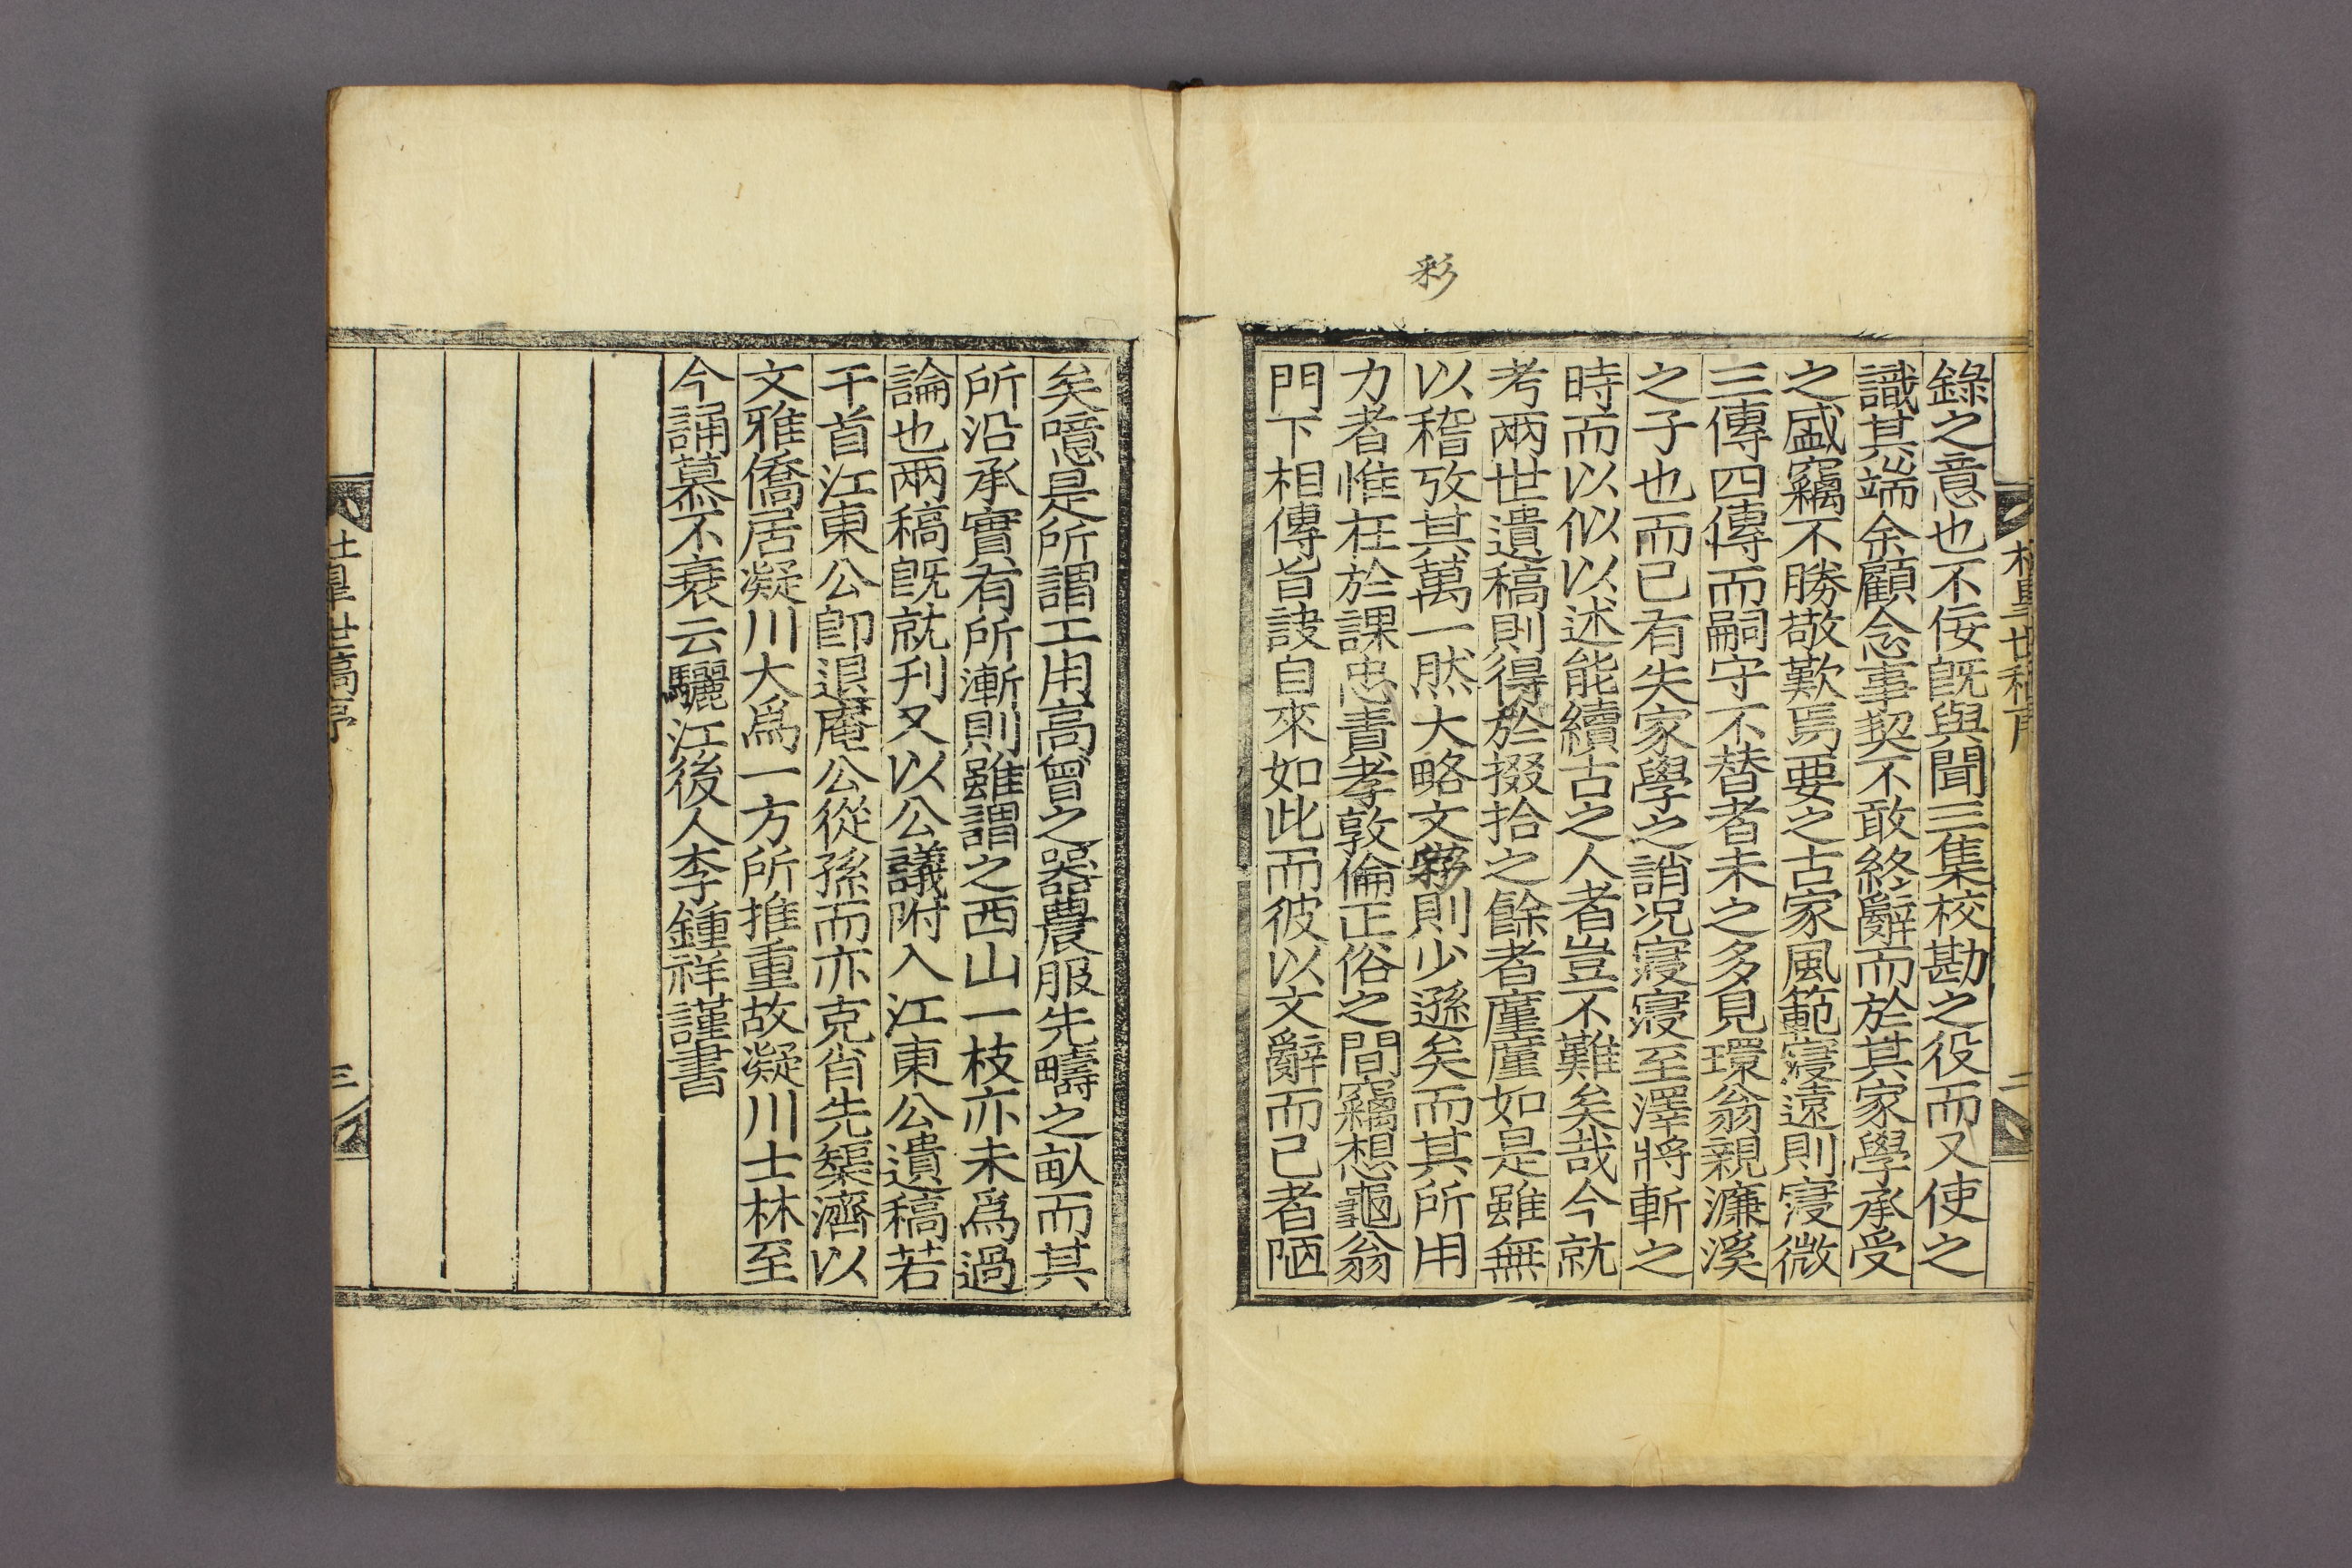 彩
錄之意也不佞旣與聞三集校勘之役而又使之
識其端余顧念事契不敢終辭而於其家學承受
之盛竊不勝敬歎焉要之古家風範寖遠則寖微
三傳四傳而嗣守不替者未之多見環翁親濂溪
之子也而已有失家學之誚況寖寖至澤將斬之
時而以似以述能續古之人者豈不難矣哉今就
考兩世遺稿則得於掇拾之餘者廑廑如是雖無
以稽攷其萬一然大略文彩則少遜矣而其所用
力者惟在於課忠責孝敦倫正俗之間竊想龜翁
門下相傳旨訣自來如此而彼以文辭而已者陋
矣噫是所謂工用高曾之器農服先疇之畝而其
所沿承實有所漸則雖謂之西山一枝亦未爲過
論也兩稿旣就刊又以公議附入江東公遺稿若
干首江東公卽退庵公從孫而亦克肖先榘濟以
文雅僑居凝川大爲一方所推重故凝川士林至
今誦慕不衰云驪江後人李鍾祥謹書
世稿序
三